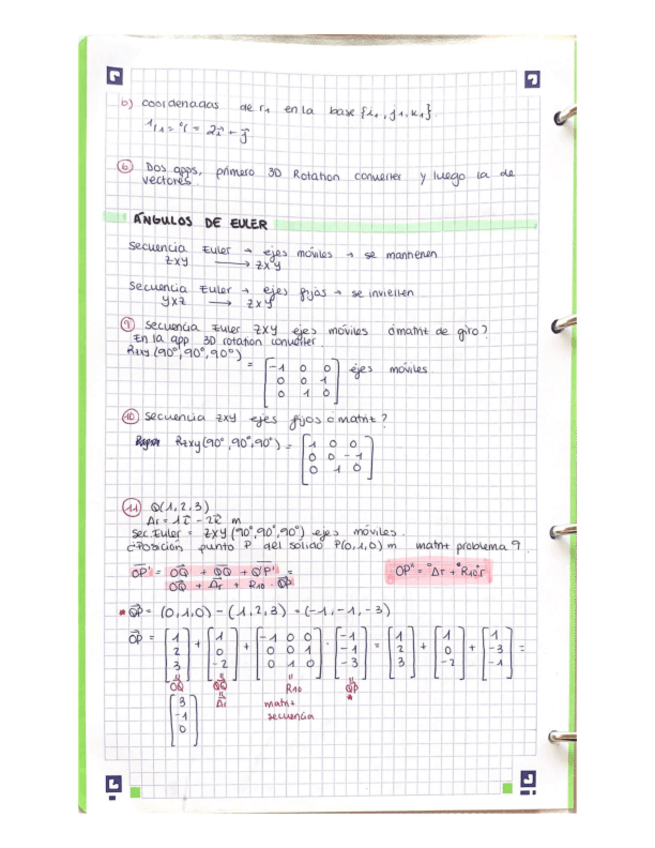 b) coordenadas de r₁ en la base {i₁, j₁, k₁}.
¹r₁ = ⁰r = 2i⃗ + j⃗
6 Dos apps, primero 3D Rotation converter y luego la de
vectores.
ÁNGULOS DE EULER
Secuencia Euler → ejes móviles → se mantienen
zxy → zxy
Secuencia Euler → ejes fijos → se invierten
yxz → zxy
9 Secuencia Euler zxy ejes móviles ¿matriz de giro?
En la app 3D rotation converter.
Rzxy (90°, 90°, 90°) = [-1 0 0 ejes móviles
0 0 1
0 1 0]
10 Secuencia zxy ejes fijos ¿matriz?
Rzxy (90°, 90°, 90°) = [1 0 0
0 0 -1
0 1 0]
11 Q(1,2,3)
Δr = 1i⃗ - 2k⃗ m
Sec. Euler = zxy (90°, 90°, 90°) ejes móviles.
¿Posición punto P del sólido P(0,1,0) m matriz problema 9.
OP' = OQ + QQ' + Q'P' =
OQ + Δr + R10 · QP
OP' = ⁰Δr + R10 r
* QP = (0,1,0) - (1,2,3) = (-1,-1,-3)
OP = [1 2 3] + [1 0 -2] + [-1 0 0 / 0 0 1 / 0 1 0] · [-1 -1 -3] = [1 2 3] + [1 0 -2] + [1 -3 -1] =
OQ QQ' R10 QP
Δr matriz *
secuencia
[3 -1 0]